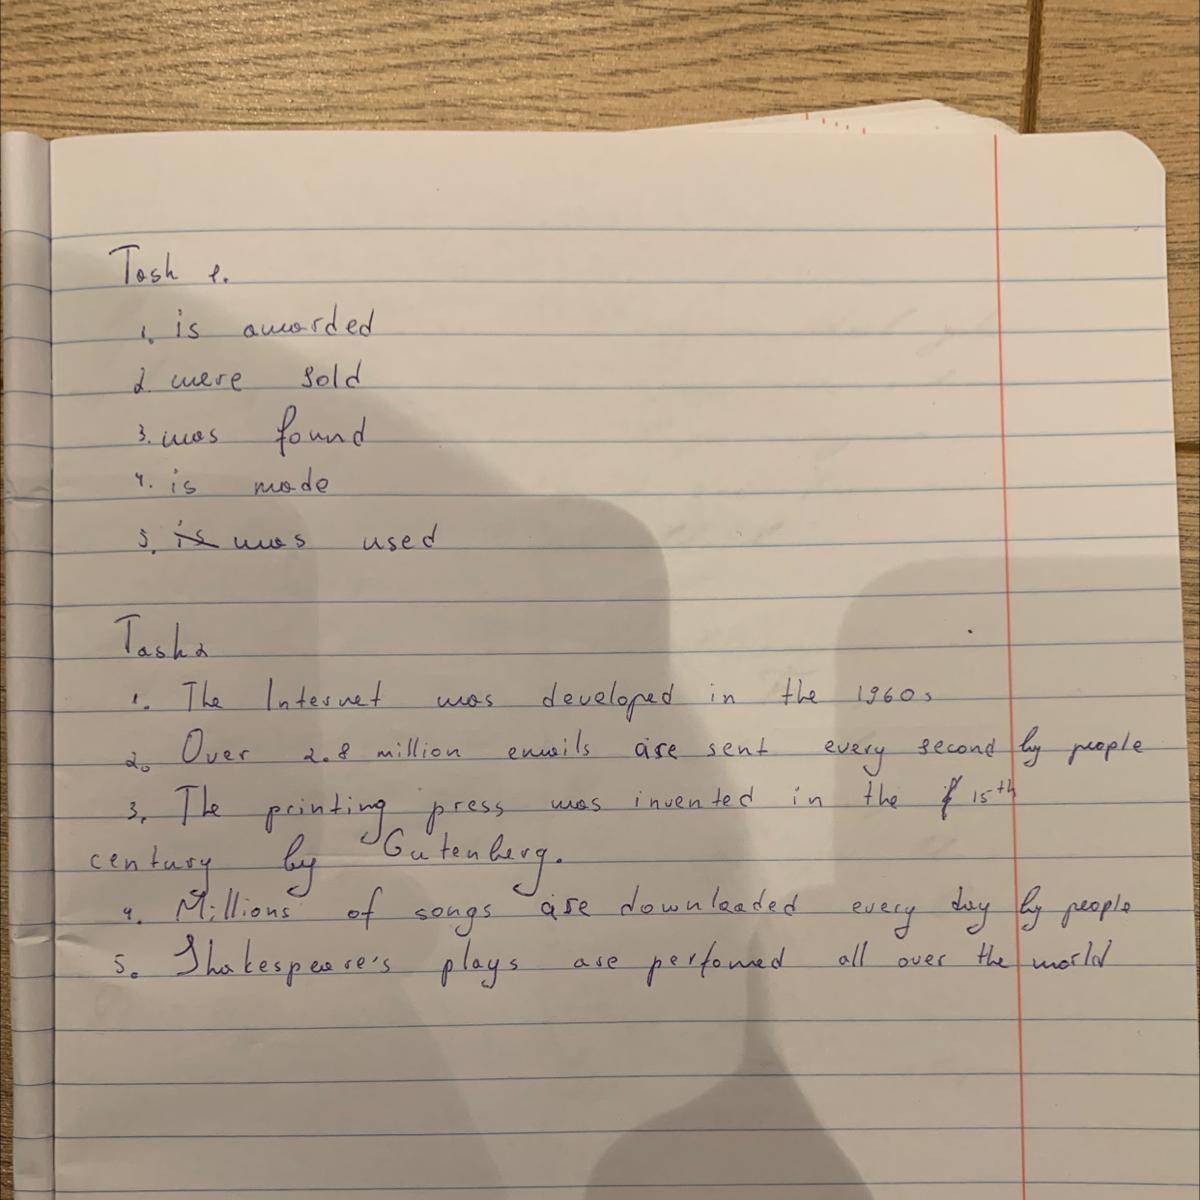 Task 1.
1. is awarded
2. were sold
3. was found
4. is made
5. is was used
Task 2
1. The Internet was developed in the 1960s
2. Over 2.8 million emails are sent every second by people
3. The printing press was invented in the 15th
century by Gutenberg.
4. Millions of songs are downloaded every day by people
5. Shakespeare's plays are perfomed all over the world